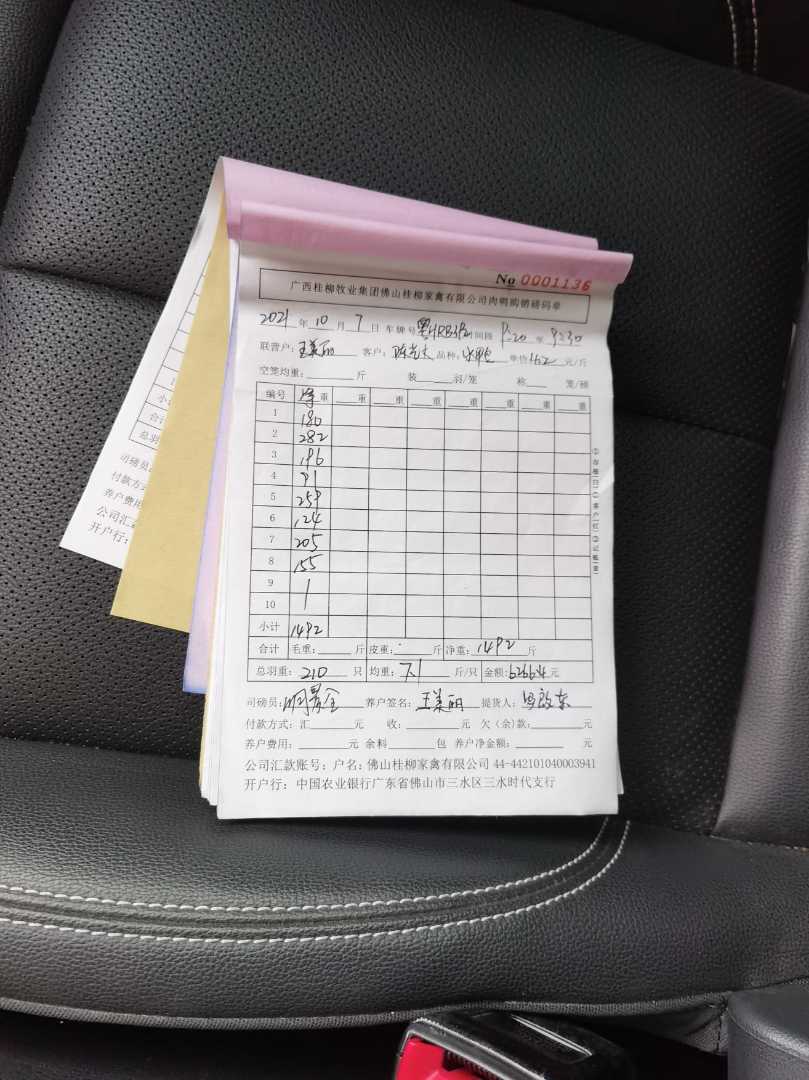 No 0001136
广西桂柳牧业集团佛山桂柳家禽有限公司肉鸭购销磅码单
2021年10月7日 车牌号 时间段 9:20 至 9:30
联营户:王美丽 客户: 品种:水鸭 单价 元/斤
空笼均重: 斤 装 羽/笼 称 笼/磅
编号 净重 重 重 重 重 重 重 重
1 180
2 282
3 196
4 91
5 259
6 124
7 205
8 155
9
10
小计 1492
合计 毛重: 斤 皮重: 斤 净重:1492斤
总羽重:210只 均重:7.1斤/只 金额: 元
司磅员: 养户签名:王美丽 提货人:
付款方式:汇 元 收: 元 欠(余)款: 元
养户费用: 元 余料 包 养户净金额: 元
公司汇款账号:户名:佛山桂柳家禽有限公司 44-442101040003941
开户行:中国农业银行广东省佛山市三水区三水时代支行
小
合计
总羽
司磅员
付款方式
养户费用
公司汇
开户行: